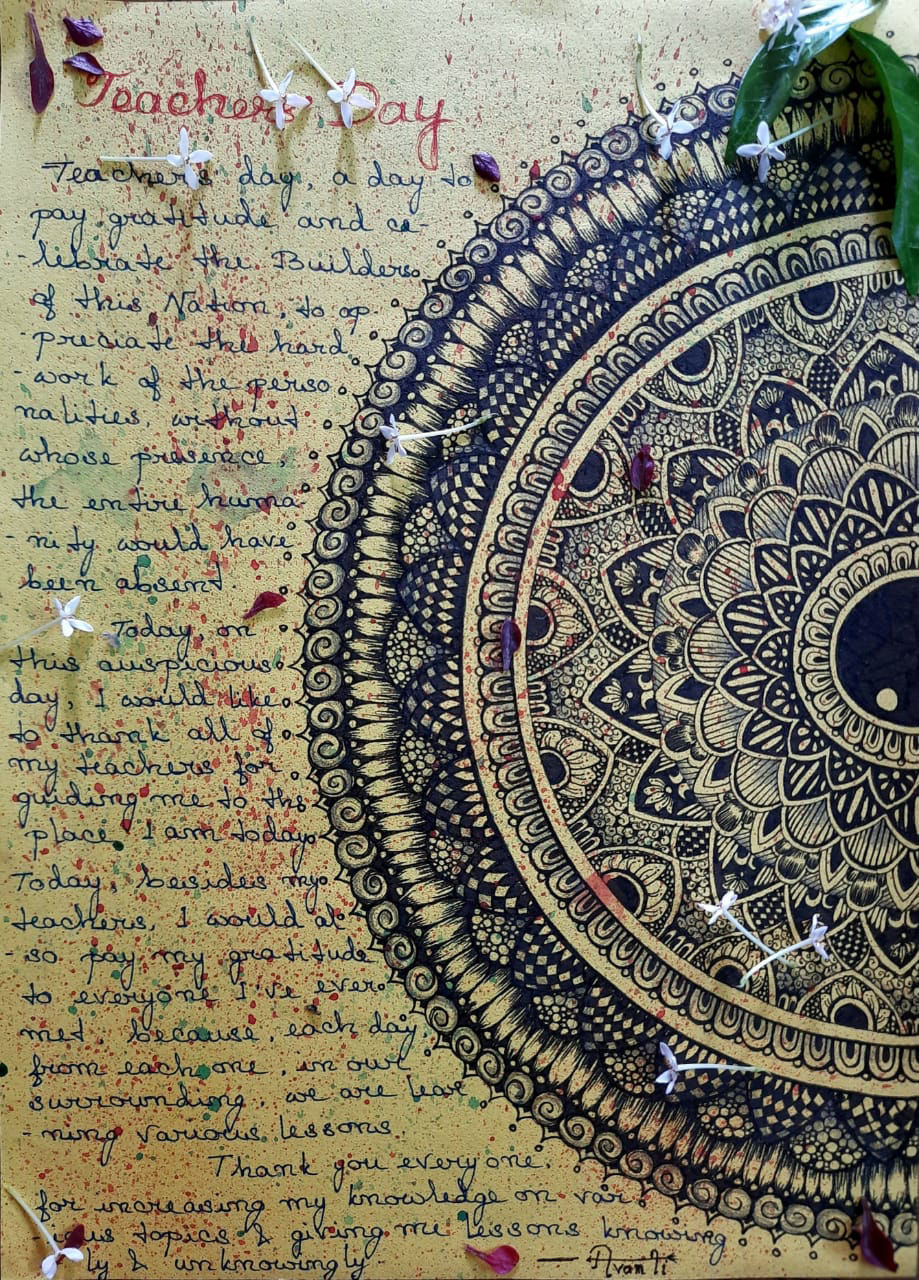 Teachers Day
Teachers day, a day to
pay gratitude and ce-
-lebrate the Builders
of this Nation, to ap-
-preciate the hard
-work of the perso
nalities, without
whose presence,
the entire huma
-nity would have
been absent.
Today, on
this auspicious
day, I would like
to thank all of
my teachers for
guiding me to the
place I am today.
Today, besides my
teachers, I would al
-so pay my gratitude
to everyone I've ever
met, because, each day
from each one, in our
surrounding, we are lear
-ning various lessons
Thank you everyone,
for increasing my knowledge on var
-ious topics & giving me lessons knowing
ly & unknowingly-
— Avanti